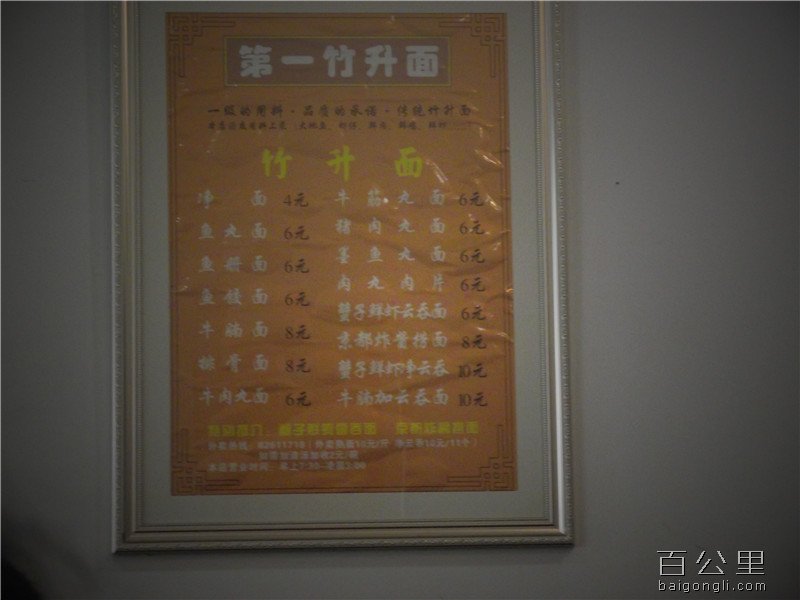 第一竹升面
一级的用料·品质的承诺·传统竹升面
竹升面
净面 4元
鱼丸面 6元
鱼册面 6元
鱼饺面 6元
牛腩面 8元
排骨面 8元
牛肉丸面 6元
牛筋丸面 6元
猪肉丸面 6元
墨鱼丸面 6元
肉丸肉片 6元
蟹子鲜虾云吞面 6元
京都炸酱捞面 8元
蟹子鲜虾净云吞 10元
牛腩加云吞面 10元
特别推介
外卖热线：82611718（外卖熟面10元/斤 净云吞10元/11个）
本店营业时间：早上7:30-凌晨3:00
百公里
baigongli.com